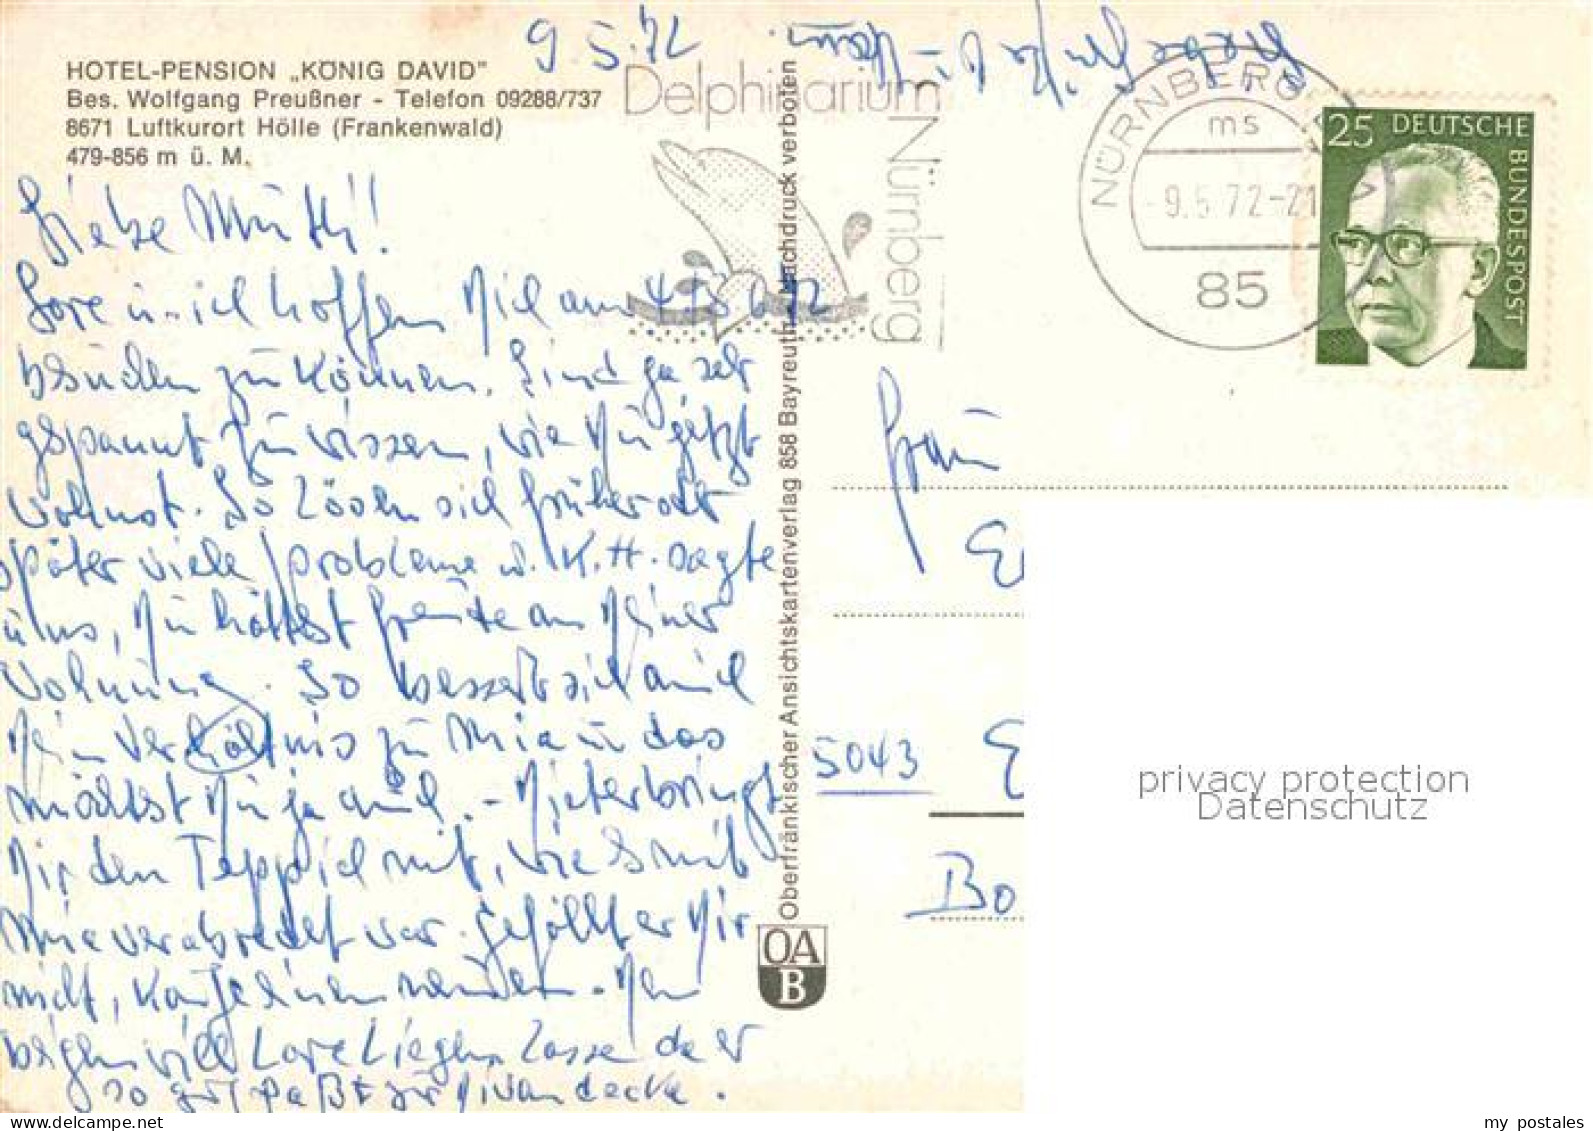 HOTEL-PENSION „KÖNIG DAVID"
Bes. Wolfgang Preußner - Telefon 09288/737
8671 Luftkurort Hölle (Frankenwald)
479-856 m ü. M.
9.5.72
Liebe Mutti!
Lore u. ich hoffen Dich am
besuchen zu können. Sind ja sehr
gespannt zu wissen, wie Du jetzt
wohnst. So lösen sich früher oder
später viele Probleme u. K.H. sagte
uns, Du hättest Freude an Deiner
Wohnung. So bessert sich auch
Dein Verhältnis zu Mia u. das
möchtest Du ja auch. - Dieter bringt
Dir den Teppich mit, wie es mit
Mia verabredet war. Gefällt er Dir
nicht, kannst Du ihn
will Lore liegen lassen da er
so gut paßt zur Divandecke.
Oberfränkischer Ansichtskartenverlag 858 Bayreuth Nachdruck verboten
OA
B
Delphinarium
Nürnberg
NÜRNBERG
ms
-9.5.72-21
85
25 DEUTSCHE
BUNDESPOST
Frau
5043
Bo
privacy protection
Datenschutz
www.delcampe.net
my_postales